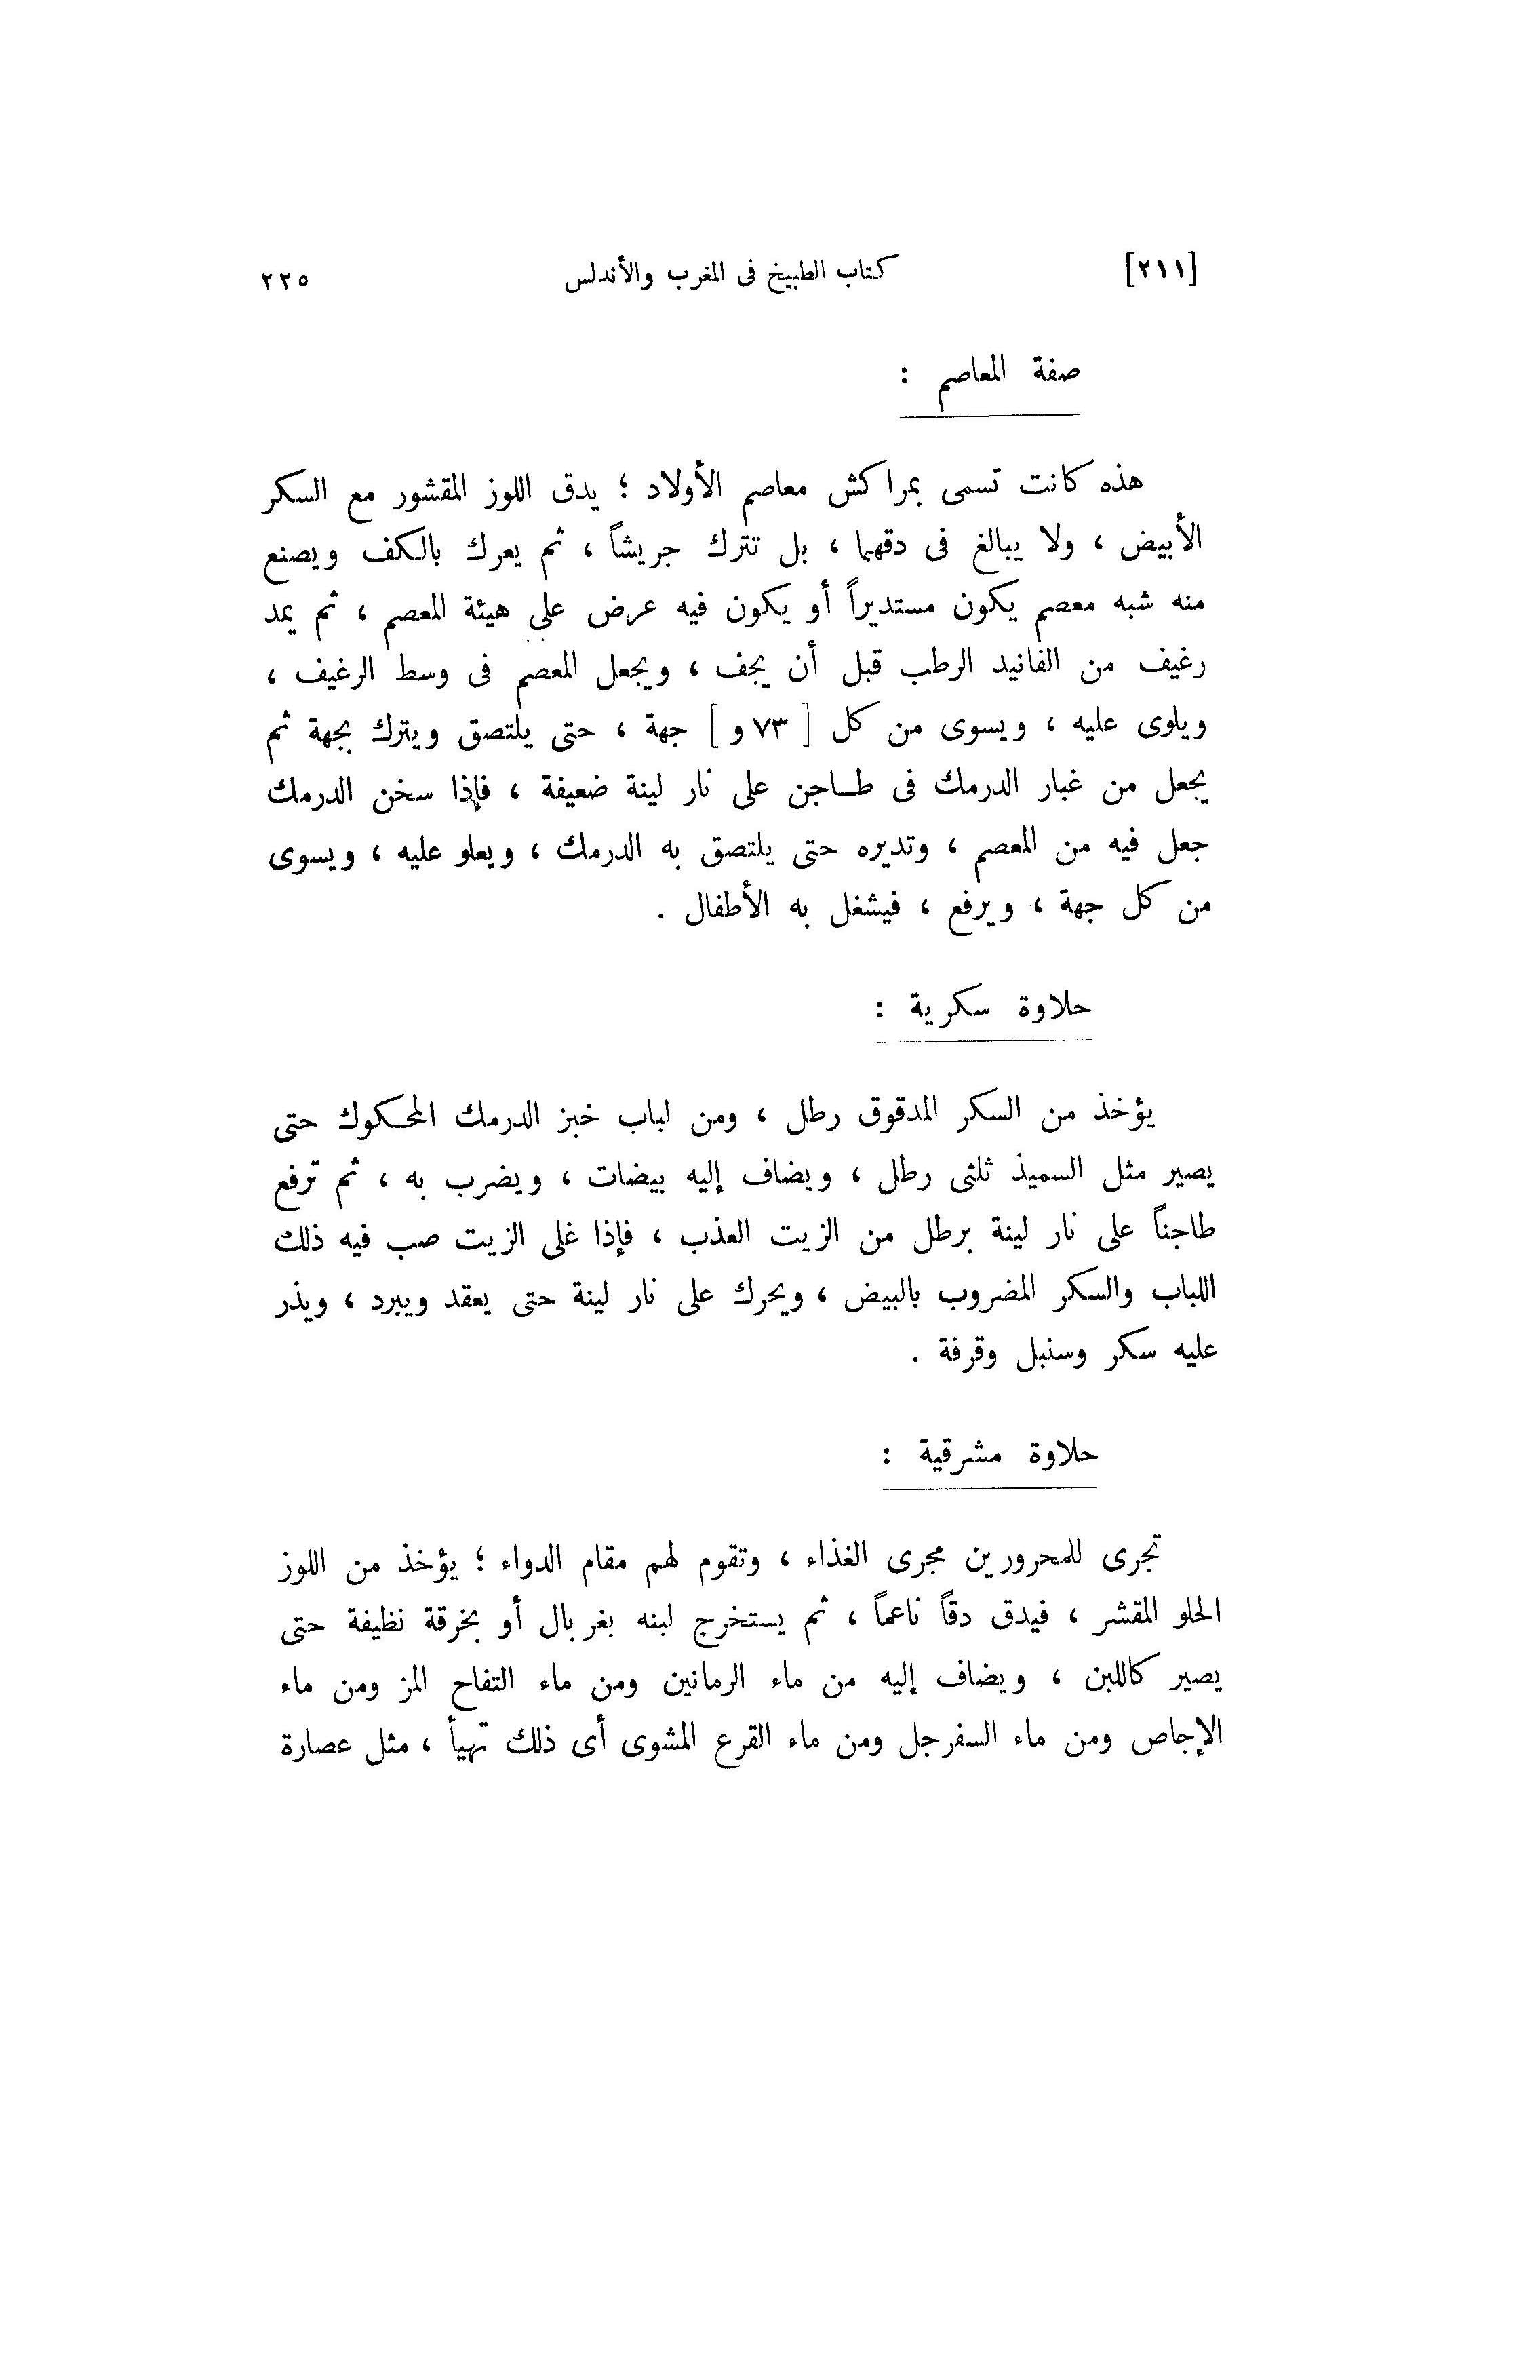 [٢١١] كتاب الطبيخ فى المغرب والأندلس ٢٢٥
صفة المعاصم :
هذه كانت تسمى بمراكش معاصم الأولاد ؛ يدق اللوز المقشور مع السكر
الأبيض ، ولا يبالغ فى دقهما ، بل تترك جريشاً ، ثم يعرك بالكف ويصنع
منه شبه معصم يكون مستديراً أو يكون فيه عرض على هيئة المعصم ، ثم يمد
رغيف من الفانيد الرطب قبل أن يجف ، ويجعل المعصم فى وسط الرغيف ،
ويلوى عليه ، ويسوى من كل [ ٧٣ و ] جهة ، حتى يلتصق ويترك بجهة ثم
يجعل من غبار الدرمك فى طاجن على نار لينة ضعيفة ، فإذا سخن الدرمك
جعل فيه من المعصم ، وتديره حتى يلتصق به الدرمك ، ويعلو عليه ، ويسوى
من كل جهة ، ويرفع ، فيشغل به الأطفال .
حلاوة سكرية :
يؤخذ من السكر المدقوق رطل ، ومن لباب خبز الدرمك المحكوك حتى
يصير مثل السميذ ثلثى رطل ، ويضاف إليه بيضات ، ويضرب به ، ثم ترفع
طاجناً على نار لينة برطل من الزيت العذب ، فإذا غلى الزيت صب فيه ذلك
اللباب والسكر المضروب بالبيض ، ويحرك على نار لينة حتى يعقد ويبرد ، ويذر
عليه سكر وسنبل وقرفة .
حلاوة مشرقية :
تجرى للمحرورين مجرى الغذاء ، وتقوم لهم مقام الدواء ؛ يؤخذ من اللوز
الحلو المقشر ، فيدق دقاً ناعماً ، ثم يستخرج لبنه بغربال أو بخرقة نظيفة حتى
يصير كاللبن ، ويضاف إليه من ماء الرمانين ومن ماء التفاح المز ومن ماء
الإجاص ومن ماء السفرجل ومن ماء القرع المشوى أى ذلك تهيأ ، مثل عصارة